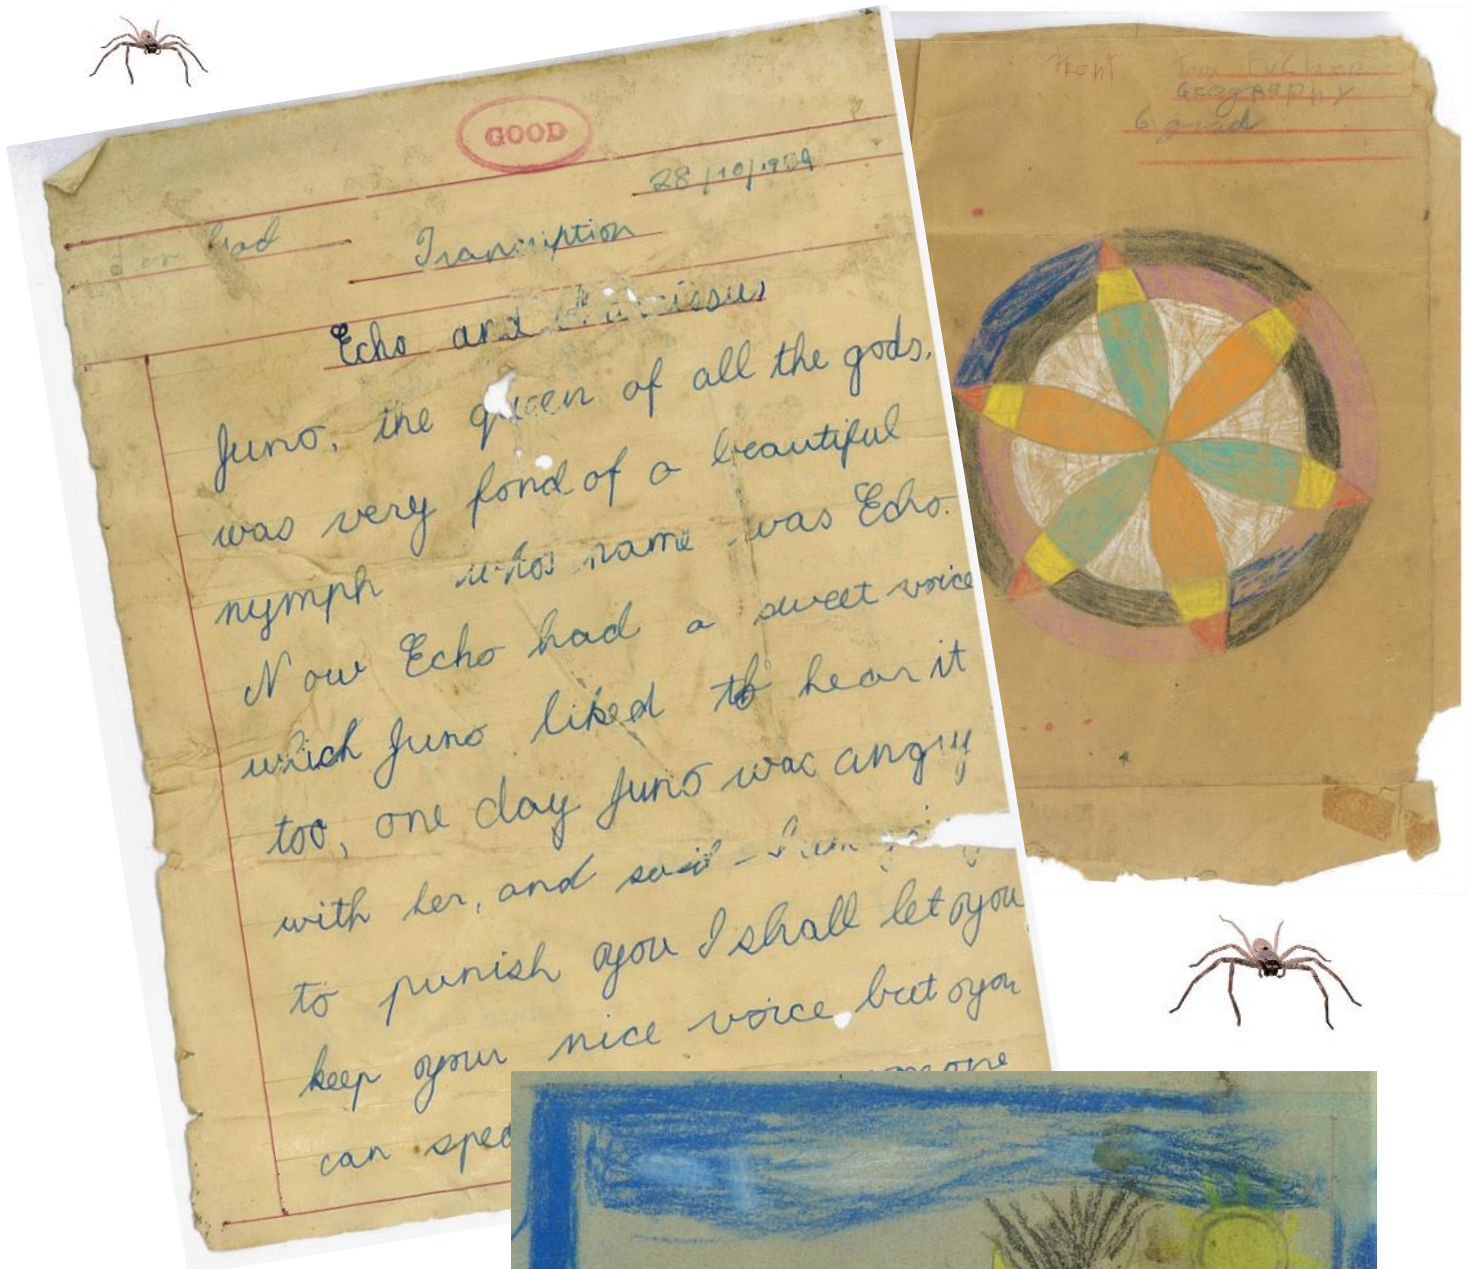 GOOD
28/10/1959
Trancription
Echo and Narcissus
Juno, the queen of all the gods,
was very fond of a beautiful
nymph whos name was Echo.
Now Echo had a sweet voice
which Juno liked to hear it
too, one day Juno was angry
with her, and said - I am
to punish you I shall let you
keep your nice voice but you
can
front
Tom
Geography
6 grad